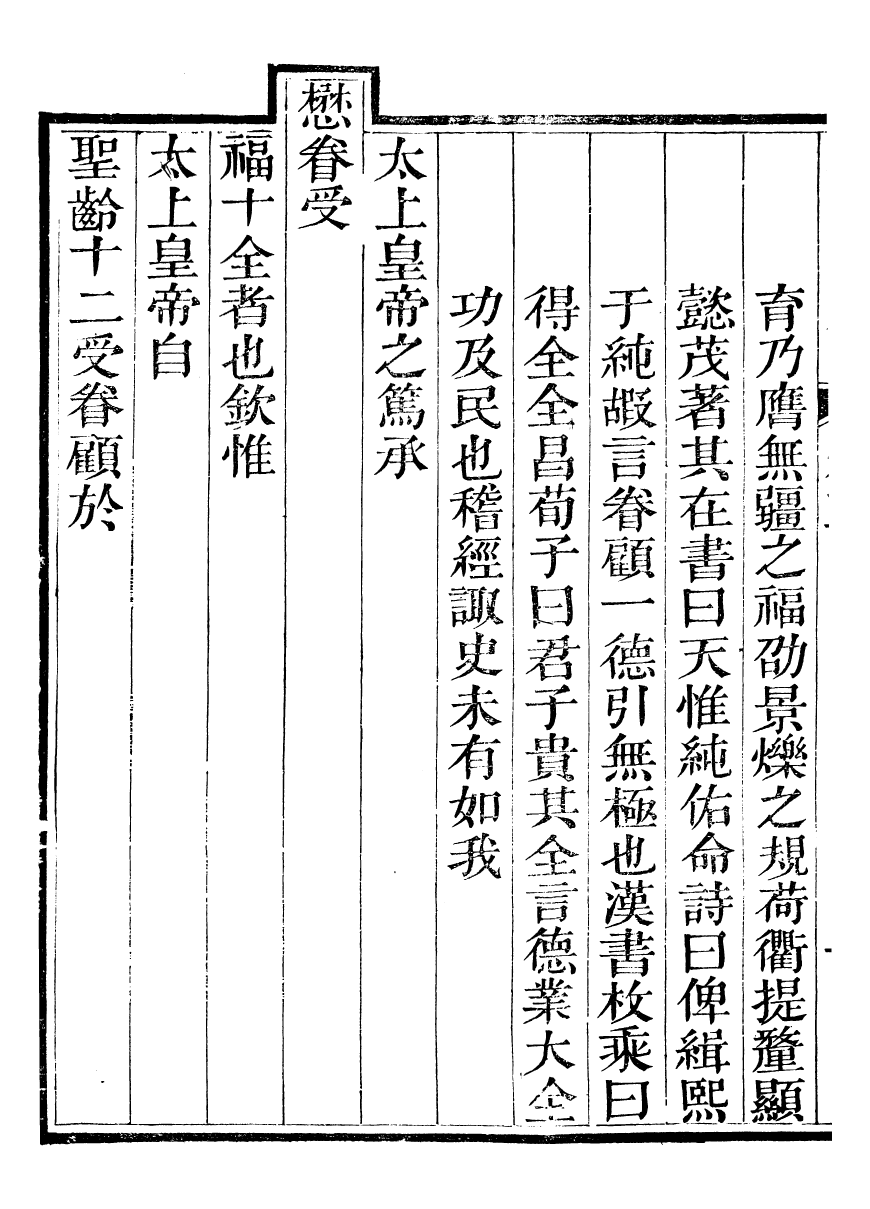 育乃膺無疆之福劭景爍之規荷衢提釐顯
懿茂著其在書曰天惟純佑命詩曰俾緝熙
于純嘏言眷顧一德引無極也漢書枚乘曰
得全全昌荀子曰君子貴其全言德業大全
功及民也稽經諏史未有如我
太上皇帝之篤承
懋眷受
福十全者也欽惟
太上皇帝自
聖齡十二受眷顧於